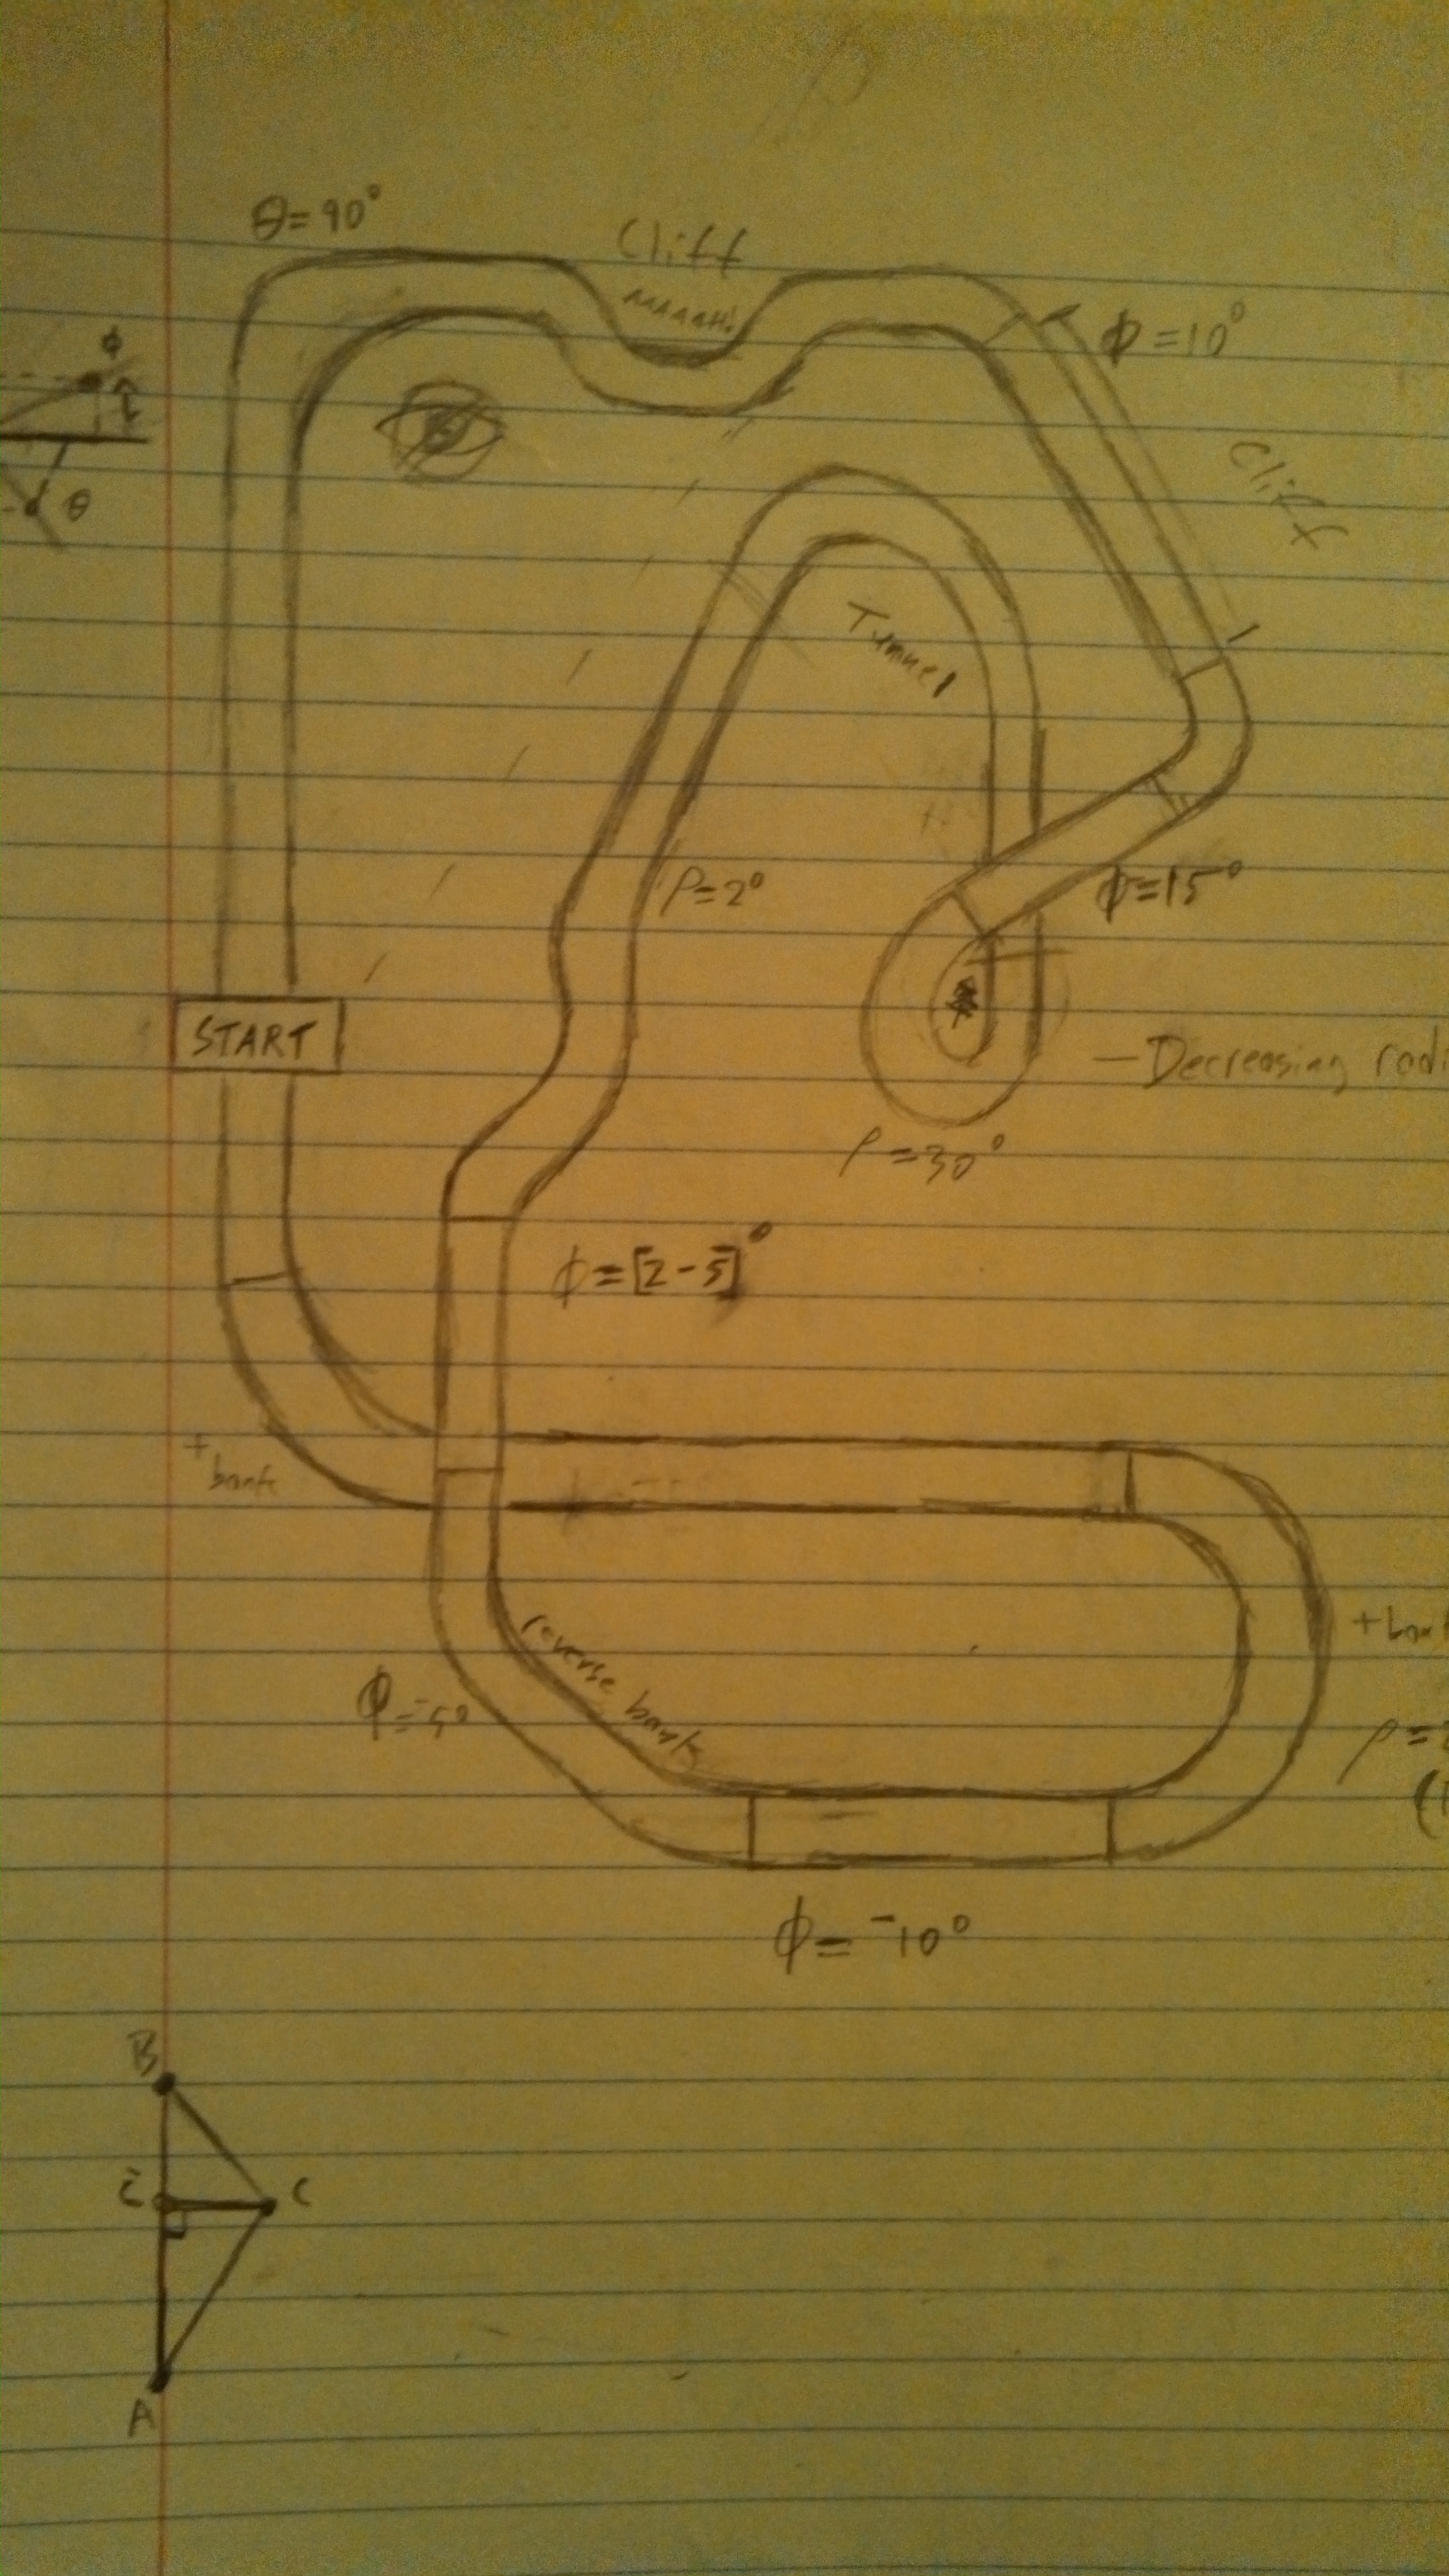 θ=90°
Cliff
AAAAAH!
ϕ=10°
ϕ
θ
Cliff
Tunnel
ρ=2°
ϕ=15°
START
-Decreasing radi
ρ=30°
ϕ=[2-5]°
+
bank
+ban
reverse bank
ϕ=-5°
ρ=
ϕ=-10°
B
C
A